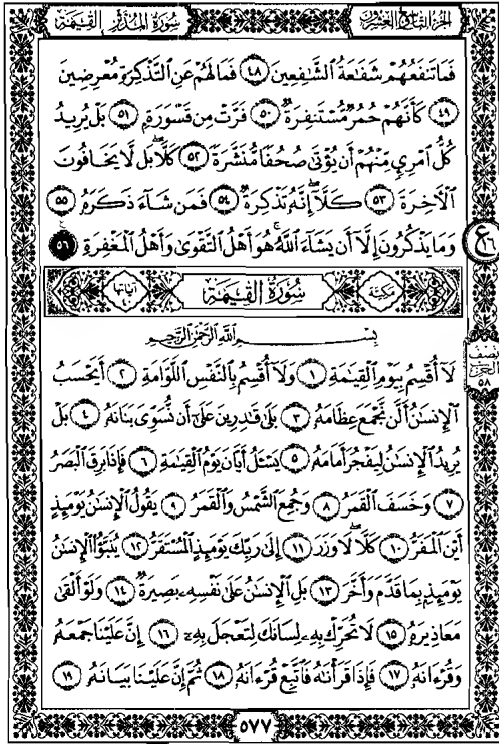 سُورَةُ المُدَّثِّرِ القِيَامَةِ
الجزء التاسع والعشرون
فَمَا تَنفَعُهُمْ شَفَٰعَةُ ٱلشَّٰفِعِينَ ٤٨ فَمَا لَهُمْ عَنِ ٱلتَّذْكِرَةِ مُعْرِضِينَ
٤٩ كَأَنَّهُمْ حُمُرٌ مُّسْتَنفِرَةٌ ٥٠ فَرَّتْ مِن قَسْوَرَةٍ ٥١ بَلْ يُرِيدُ
كُلُّ ٱمْرِئٍ مِّنْهُمْ أَن يُؤْتَىٰ صُحُفًا مُّنَشَّرَةً ٥٢ كَلَّا بَل لَّا يَخَافُونَ
ٱلْءَاخِرَةَ ٥٣ كَلَّآ إِنَّهُۥ تَذْكِرَةٌ ٥٤ فَمَن شَآءَ ذَكَرَهُۥ ٥٥
وَمَا يَذْكُرُونَ إِلَّآ أَن يَشَآءَ ٱللَّهُ هُوَ أَهْلُ ٱلتَّقْوَىٰ وَأَهْلُ ٱلْمَغْفِرَةِ ٥٦
ع
مكيّة
سُورَةُ القِيَامَةِ
آياتها
بِسْمِ ٱللَّهِ ٱلرَّحْمَٰنِ ٱلرَّحِيمِ
نصف الحزب ٥٨
لَآ أُقْسِمُ بِيَوْمِ ٱلْقِيَٰمَةِ ١ وَلَآ أُقْسِمُ بِٱلنَّفْسِ ٱللَّوَّامَةِ ٢ أَيَحْسَبُ
ٱلْإِنسَٰنُ أَلَّن نَّجْمَعَ عِظَامَهُۥ ٣ بَلَىٰ قَٰدِرِينَ عَلَىٰٓ أَن نُّسَوِّىَ بَنَانَهُۥ ٤ بَلْ
يُرِيدُ ٱلْإِنسَٰنُ لِيَفْجُرَ أَمَامَهُۥ ٥ يَسْـَٔلُ أَيَّانَ يَوْمُ ٱلْقِيَٰمَةِ ٦ فَإِذَا بَرِقَ ٱلْبَصَرُ
٧ وَخَسَفَ ٱلْقَمَرُ ٨ وَجُمِعَ ٱلشَّمْسُ وَٱلْقَمَرُ ٩ يَقُولُ ٱلْإِنسَٰنُ يَوْمَئِذٍ
أَيْنَ ٱلْمَفَرُّ ١٠ كَلَّا لَا وَزَرَ ١١ إِلَىٰ رَبِّكَ يَوْمَئِذٍ ٱلْمُسْتَقَرُّ ١٢ يُنَبَّؤُا۟ ٱلْإِنسَٰنُ
يَوْمَئِذٍۭ بِمَا قَدَّمَ وَأَخَّرَ ١٣ بَلِ ٱلْإِنسَٰنُ عَلَىٰ نَفْسِهِۦ بَصِيرَةٌ ١٤ وَلَوْ أَلْقَىٰ
مَعَاذِيرَهُۥ ١٥ لَا تُحَرِّكْ بِهِۦ لِسَانَكَ لِتَعْجَلَ بِهِۦٓ ١٦ إِنَّ عَلَيْنَا جَمْعَهُۥ
وَقُرْءَانَهُۥ ١٧ فَإِذَا قَرَأْنَٰهُ فَٱتَّبِعْ قُرْءَانَهُۥ ١٨ ثُمَّ إِنَّ عَلَيْنَا بَيَانَهُۥ ١٩
٥٧٧